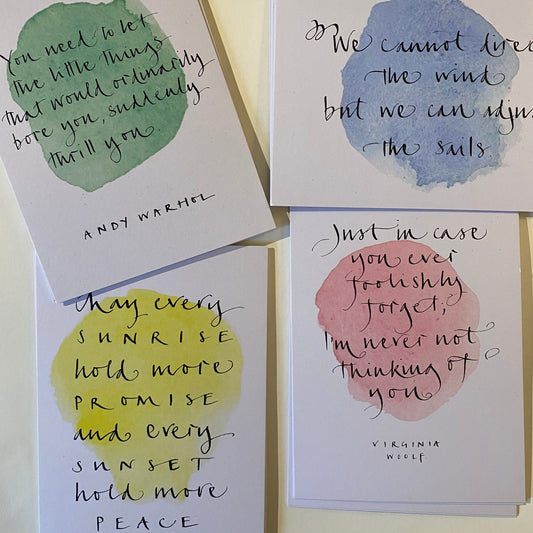 You need to let
the little things
that would ordinarily
bore you, suddenly
thrill you.
ANDY WARHOL
We cannot direc
the wind
but we can adjus
the sails.
May every
SUNRISE
hold more
PROMISE
and every
SUNSET
hold more
PEACE
Just in case
you ever
foolishly
forget;
I'm never not
thinking of
you
VIRGINIA
WOOLF.